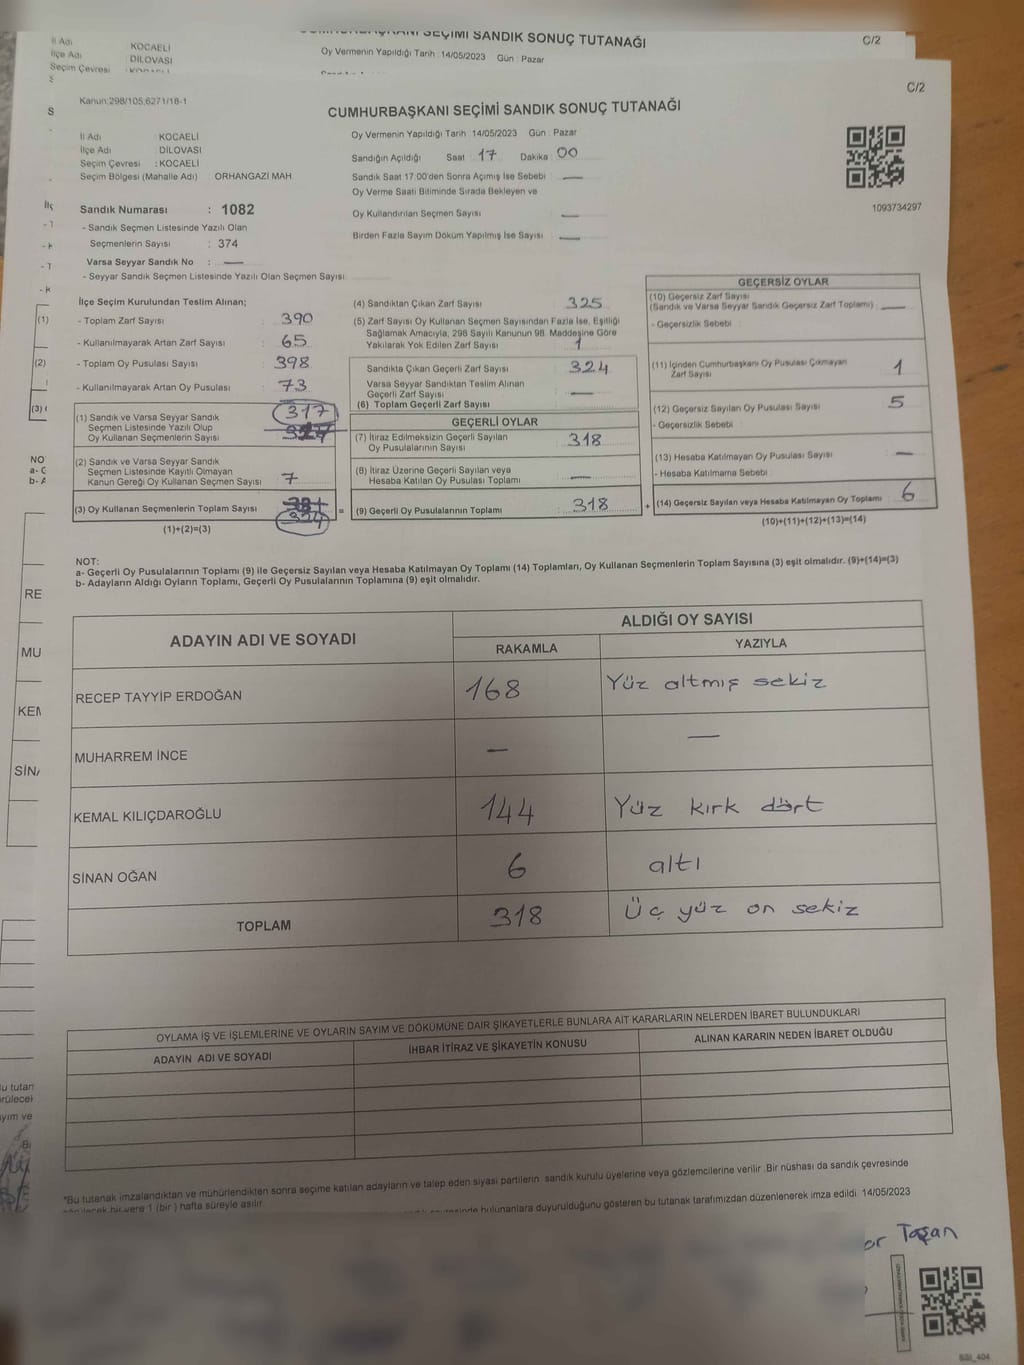 CUMHURBAŞKANI SEÇİMİ SANDIK SONUÇ TUTANAĞI
C/2
İl Adı KOCAELİ
İlçe Adı DİLOVASI
Seçim Çevresi
Oy Vermenin Yapıldığı Tarih :14/05/2023 Gün : Pazar
C/2
Kanun:298/105,6271/18-1
CUMHURBAŞKANI SEÇİMİ SANDIK SONUÇ TUTANAĞI
İl Adı : KOCAELİ
İlçe Adı : DİLOVASI
Seçim Çevresi : KOCAELİ
Seçim Bölgesi (Mahalle Adı) ORHANGAZİ MAH.
Oy Vermenin Yapıldığı Tarih :14/05/2023 Gün : Pazar
Sandığın Açıldığı Saat : 17 Dakika : 00
Sandık Saat 17:00'den Sonra Açımış İse Sebebi : —
Oy Verme Saati Bitiminde Sırada Bekleyen ve
Oy Kullandırılan Seçmen Sayısı : —
Birden Fazla Sayım Döküm Yapılmış İse Sayısı : —
1093734297
Sandık Numarası : 1082
- Sandık Seçmen Listesinde Yazılı Olan
Seçmenlerin Sayısı : 374
Varsa Seyyar Sandık No : —
- Seyyar Sandık Seçmen Listesinde Yazılı Olan Seçmen Sayısı:
İlçe Seçim Kurulundan Teslim Alınan;
- Toplam Zarf Sayısı : 390
- Kullanılmayarak Artan Zarf Sayısı : 65
- Toplam Oy Pusulası Sayısı : 398
- Kullanılmayarak Artan Oy Pusulası : 73
(1) Sandık ve Varsa Seyyar Sandık
Seçmen Listesinde Yazılı Olup
Oy Kullanan Seçmenlerin Sayısı 317
(2) Sandık ve Varsa Seyyar Sandık
Seçmen Listesinde Kayıtlı Olmayan
Kanun Gereği Oy Kullanan Seçmen Sayısı 7
(3) Oy Kullanan Seçmenlerin Toplam Sayısı 324
(1)+(2)=(3)
(4) Sandıktan Çıkan Zarf Sayısı : 325
(5) Zarf Sayısı Oy Kullanan Seçmen Sayısından Fazla İse, Eşitliği
Sağlamak Amacıyla, 298 Sayılı Kanunun 98. Maddesine Göre
Yakılarak Yok Edilen Zarf Sayısı : 1
Sandıkta Çıkan Geçerli Zarf Sayısı : 324
Varsa Seyyar Sandıktan Teslim Alınan
Geçerli Zarf Sayısı : —
(6) Toplam Geçerli Zarf Sayısı
GEÇERLİ OYLAR
(7) İtiraz Edilmeksizin Geçerli Sayılan
Oy Pusulalarının Sayısı : 318
(8) İtiraz Üzerine Geçerli Sayılan veya
Hesaba Katılan Oy Pusulası Toplamı : —
= (9) Geçerli Oy Pusulalarının Toplamı : 318
GEÇERSİZ OYLAR
(10) Geçersiz Zarf Sayısı
(Sandık ve Varsa Seyyar Sandık Geçersiz Zarf Toplamı) —
- Geçersizlik Sebebi :
(11) İçinden Cumhurbaşkanı Oy Pusulası Çıkmayan
Zarf Sayısı 1
(12) Geçersiz Sayılan Oy Pusulası Sayısı 5
- Geçersizlik Sebebi :
(13) Hesaba Katılmayan Oy Pusulası Sayısı —
- Hesaba Katılmama Sebebi :
+ (14) Geçersiz Sayılan veya Hesaba Katılmayan Oy Toplamı 6
(10)+(11)+(12)+(13)=(14)
NOT:
a- Geçerli Oy Pusulalarının Toplamı (9) ile Geçersiz Sayılan veya Hesaba Katılmayan Oy Toplamı (14) Toplamları, Oy Kullanan Seçmenlerin Toplam Sayısına (3) eşit olmalıdır. (9)+(14)=(3)
b- Adayların Aldığı Oyların Toplamı, Geçerli Oy Pusulalarının Toplamına (9) eşit olmalıdır.
ADAYIN ADI VE SOYADI
ALDIĞI OY SAYISI
RAKAMLA YAZIYLA
RECEP TAYYİP ERDOĞAN 168 Yüz altmış sekiz
MUHARREM İNCE — —
KEMAL KILIÇDAROĞLU 144 Yüz kırk dört
SİNAN OĞAN 6 altı
TOPLAM 318 Üç yüz on sekiz
OYLAMA İŞ VE İŞLEMLERİNE VE OYLARIN SAYIM VE DÖKÜMÜNE DAİR ŞİKAYETLERLE BUNLARA AİT KARARLARIN NELERDEN İBARET BULUNDUKLARI
ADAYIN ADI VE SOYADI İHBAR İTİRAZ VE ŞİKAYETİN KONUSU ALINAN KARARIN NEDEN İBARET OLDUĞU
*Bu tutanak imzalandıktan ve mühürlendikten sonra seçime katılan adayların ve talep eden siyasi partilerin sandık kurulu üyelerine veya gözlemcilerine verilir. Bir nüshası da sandık çevresinde
bir yere 1 (bir) hafta süreyle asılır.
bulunanlara duyurulduğunu gösteren bu tutanak tarafımızdan düzenlenerek imza edildi. 14/05/2023
Taşan